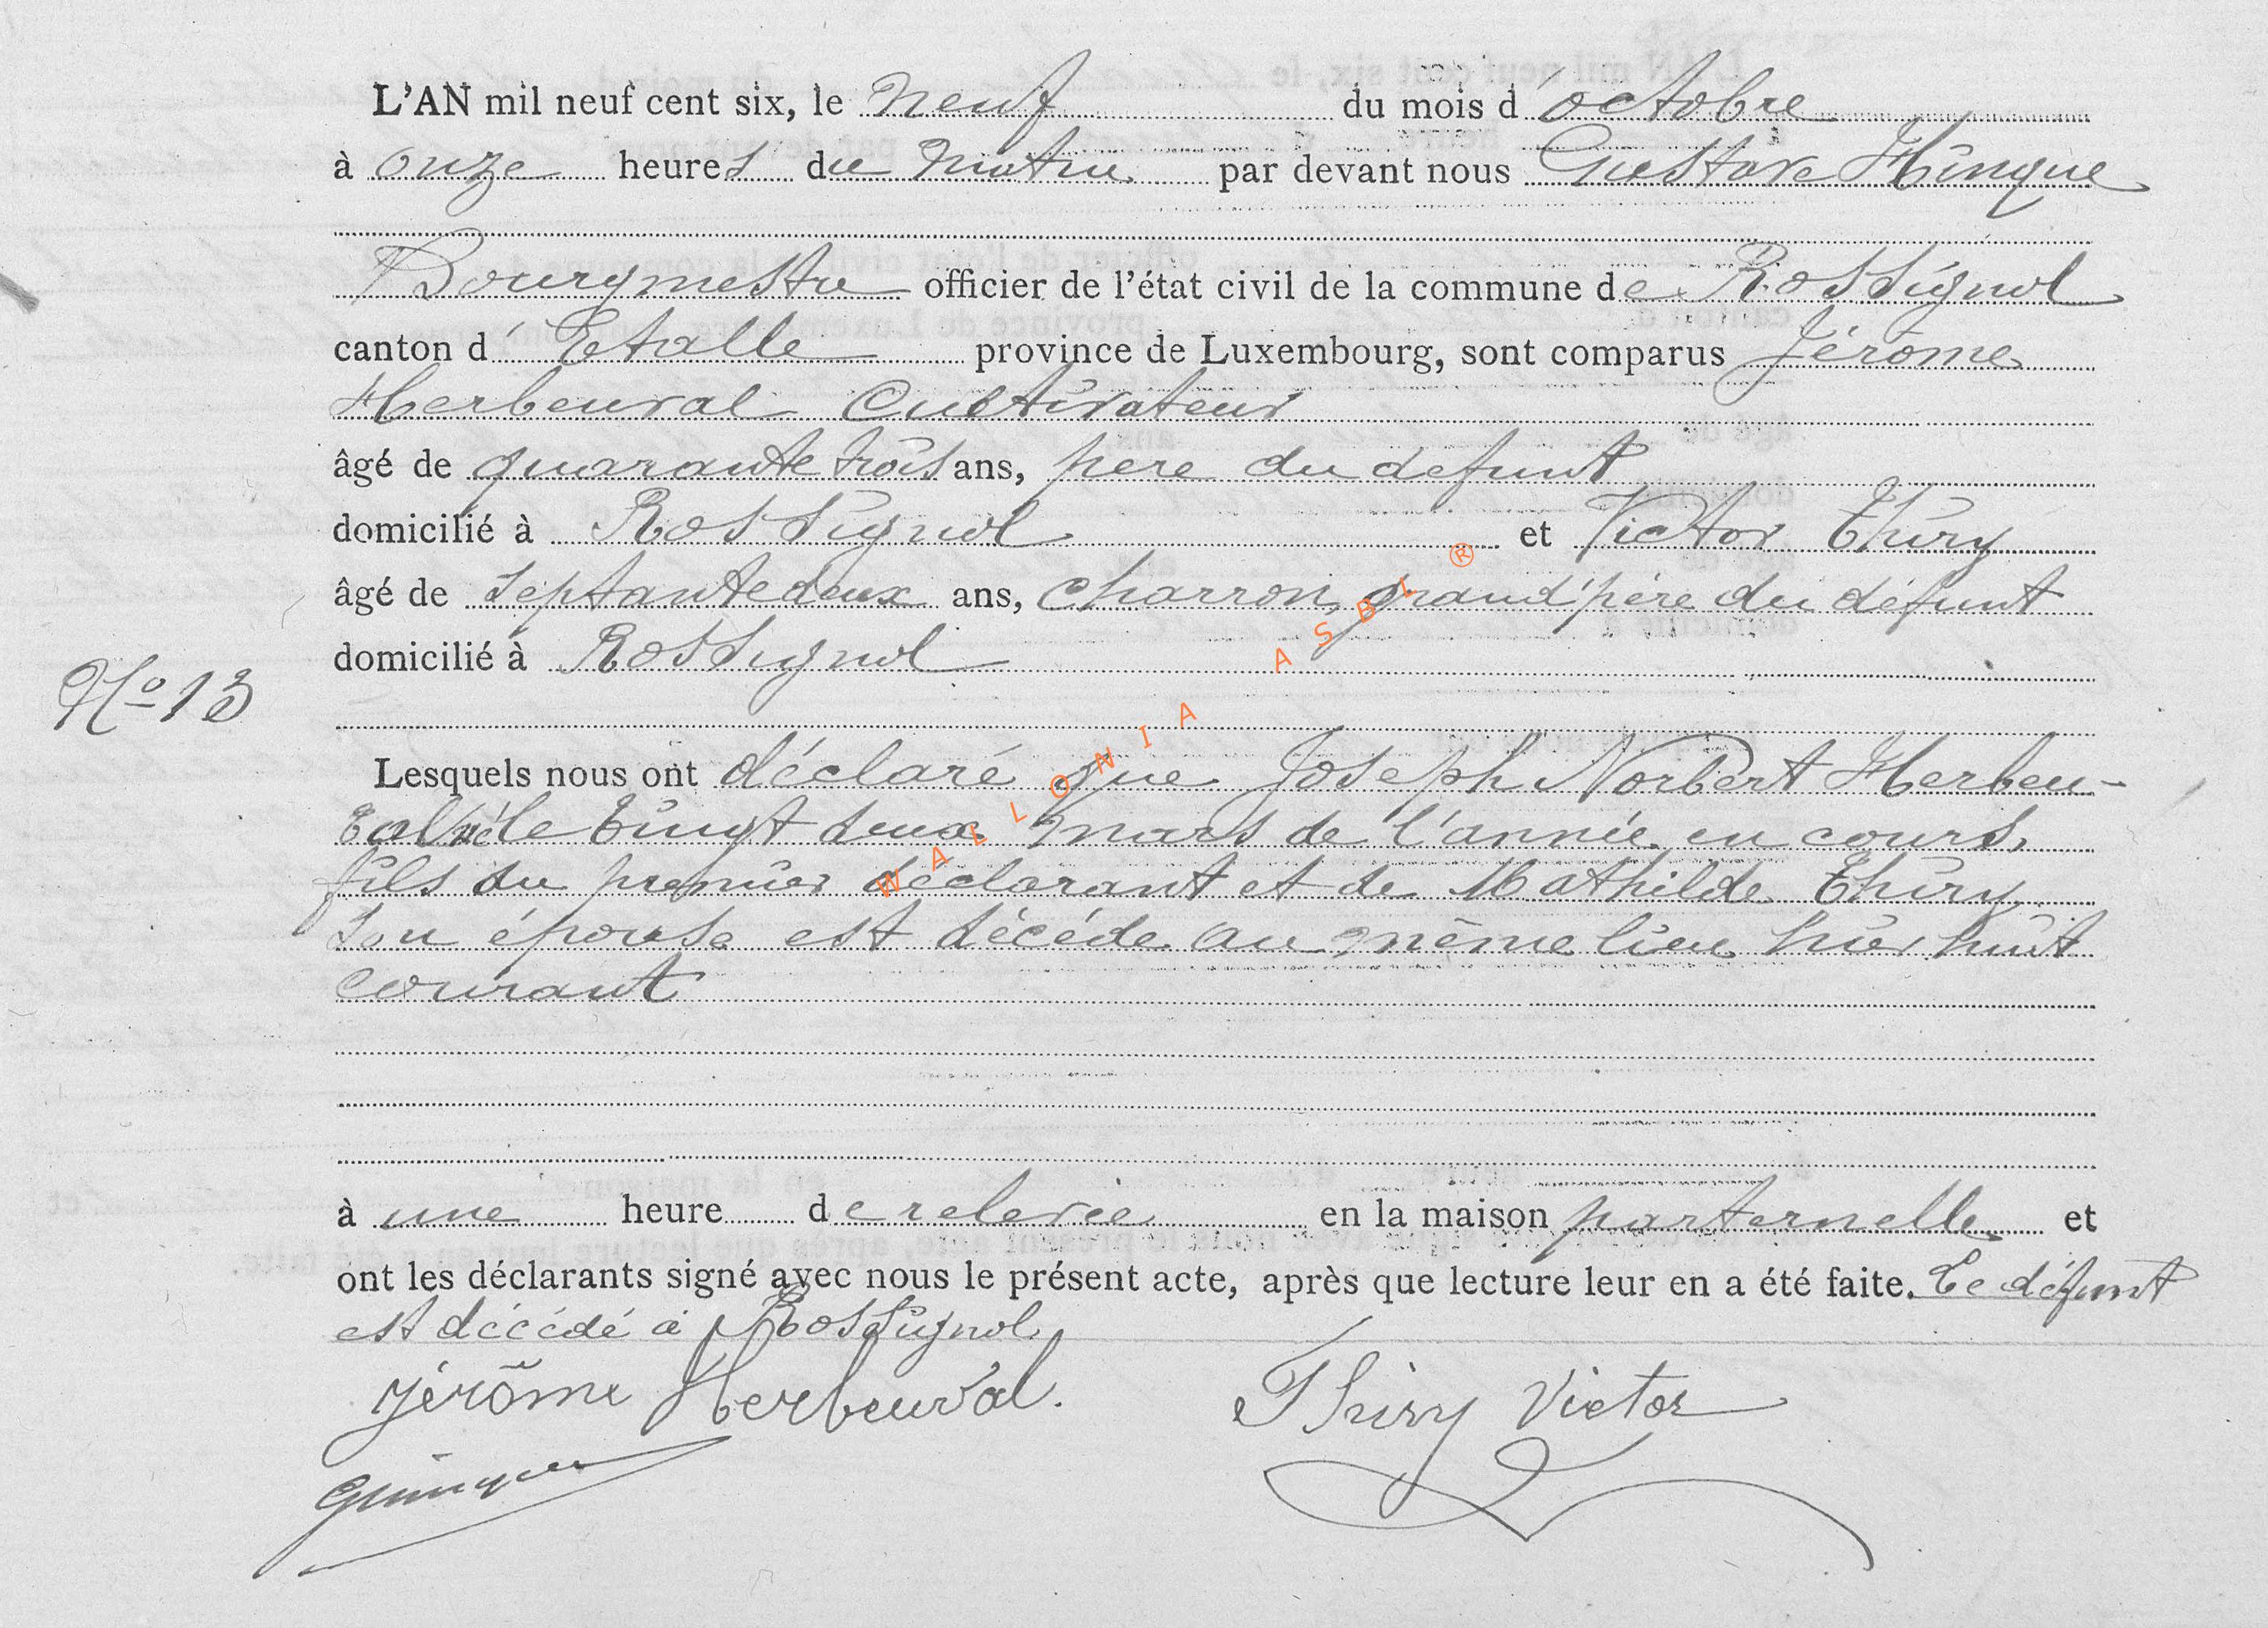 L'AN mil neuf cent six, le neuf du mois d'octobre
à onze heures du matin par devant nous Gustave Hinque
Bourgmestre officier de l'état civil de la commune de Rossignol
canton d'Etalle province de Luxembourg, sont comparus Jérome
Herbeuval Cultivateur
âgé de quarante trois ans, père du défunt
domicilié à Rossignol et Victor Thiry
âgé de septante deux ans, charron, grand'père du défunt
domicilié à Rossignol
N° 13
Lesquels nous ont déclaré que Joseph Norbert Herbeu-
val né le vingt deux mars de l'année en cours,
fils du premier déclarant et de Mathilde Thiry
son épouse est décédé au même lieu hier huit
courant
à une heure de relevée en la maison parternelle et
ont les déclarants signé avec nous le présent acte, après que lecture leur en a été faite. Le défunt
est décédé à Rossignol
Jérôme Herbeuval. Thiry Victor
WALLONIA ASBL ®